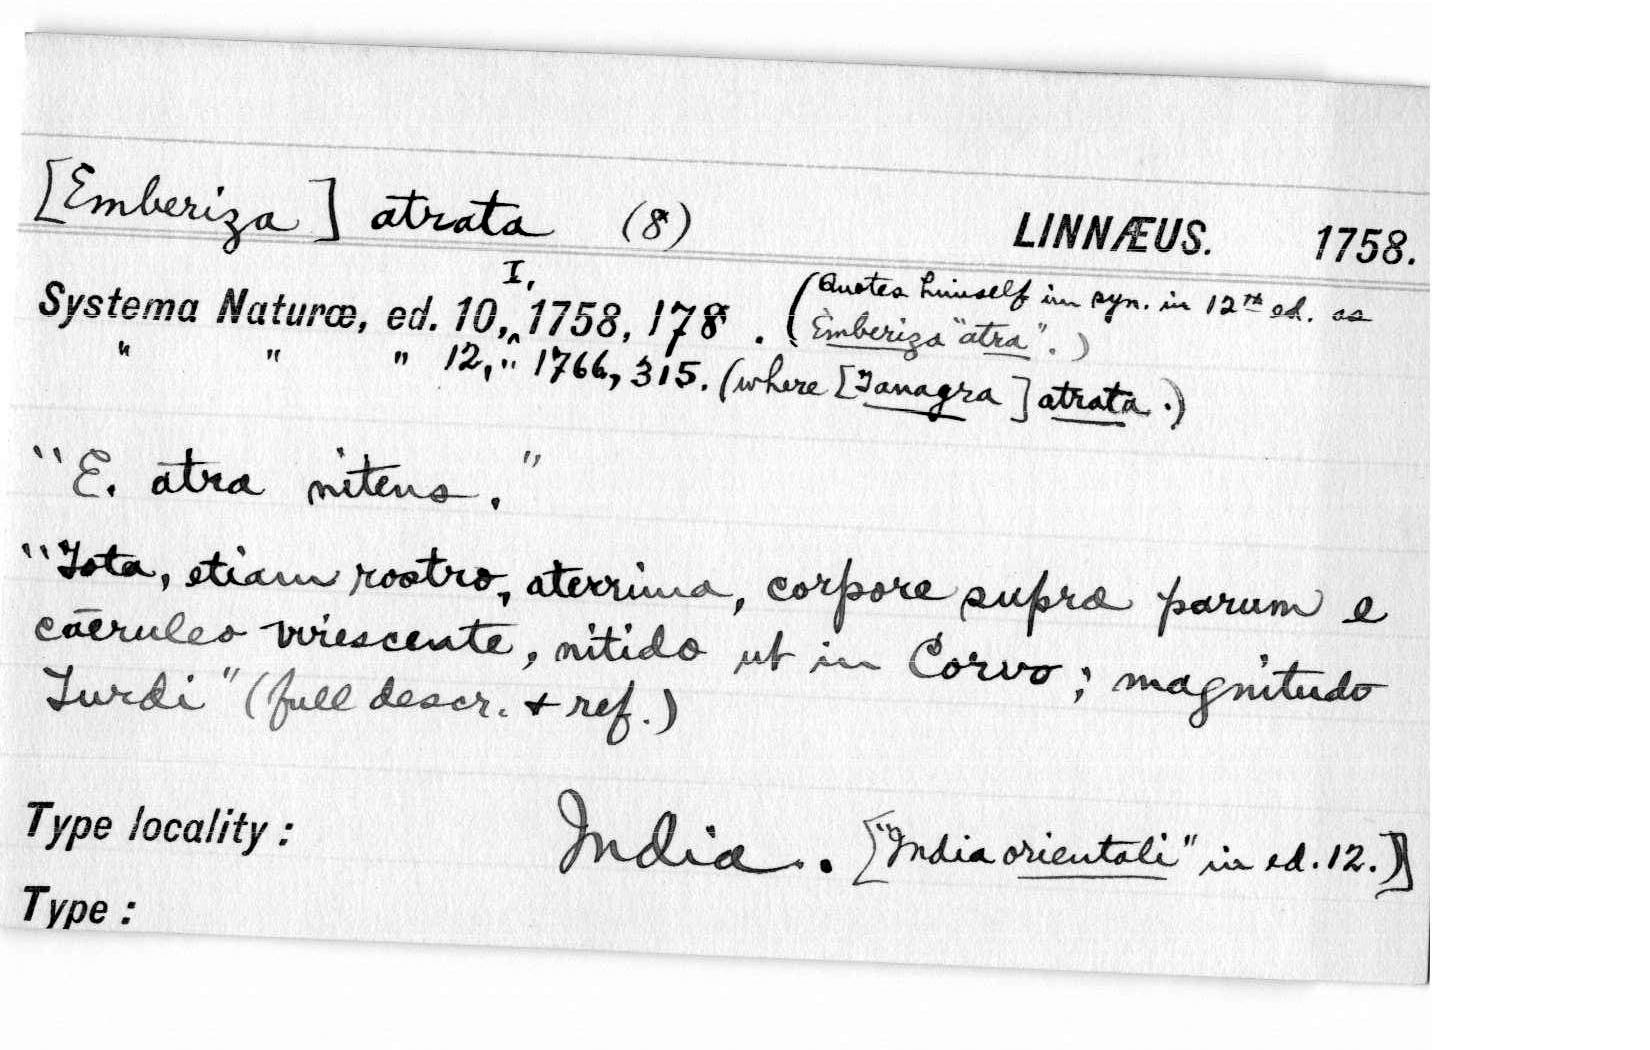 [Emberiza] atrata (8) LINNÆUS. 1758.
Systema Naturæ, ed. 10, I, 1758, 178. (Quotes himself in syn. in 12th ed. as
Emberiza "atra".)
" " " 12, " 1766, 315. (where [Tanagra] atrata.)
"E. atra nitens."
"Tota, etiam rostro, aterrima, corpore supra parum e
cæruleo virescente, nitido ut in Corvo; magnitudo
Turdi" (full descr. + ref.)
Type locality: India. ["India orientali" in ed. 12.)]
Type: